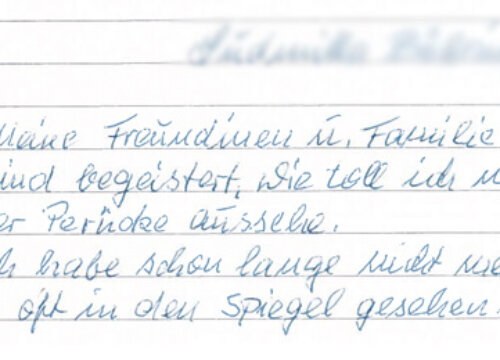 Meine Freundinen u. Familie
sind begeistert, wie toll ich
er Perücke aussehe.
habe schon lange nicht
oft in den Spiegel gesehen.